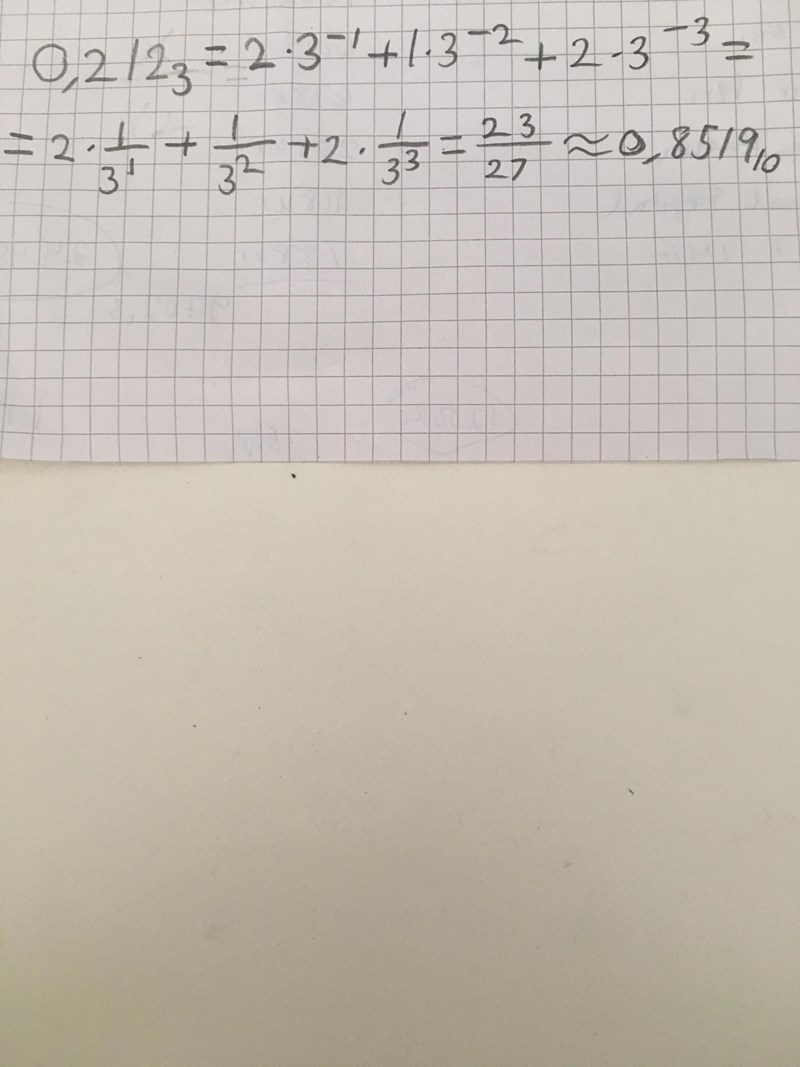 0,212₃ = 2·3⁻¹ + 1·3⁻² + 2·3⁻³ =
= 2·1/3¹ + 1/3² + 2·1/3³ = 23/27 ≈ 0,8519₁₀